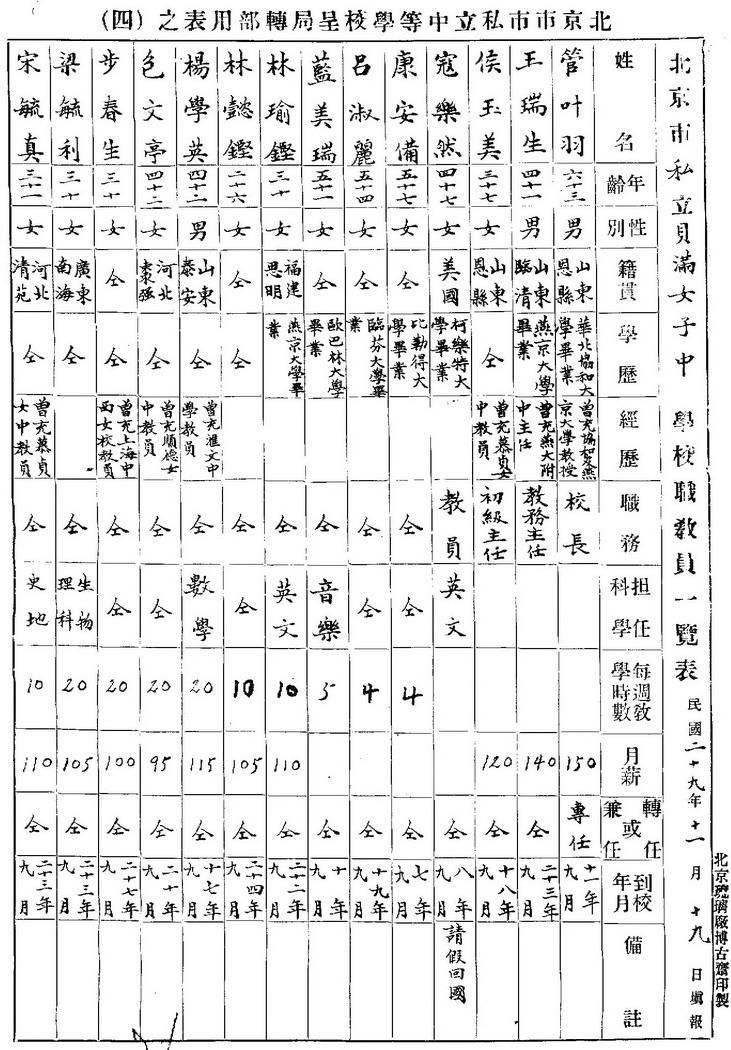 北京市市私立中等學校呈局轉部用表之(四)
北京市私立貝滿女子中 學校職教員一覽表 民國二十九年十一月十九日填報
姓名 年齡 性別 籍貫 學歷 經歷 職務 担任科學 每週教學時數 月薪 轉任或兼任 到校年月 備註
管叶羽 六十三 男 山東恩縣 華北協和大學畢業 曾充協和及燕京大學教授 校長 150 專任 十一年九月
王瑞生 四十一 男 山東臨清 燕京大學畢業 曾充燕大附中主任 教務主任 140 仝 二十三年九月
侯玉美 三十七 女 山東恩縣 仝 曾充慕貞女中教員 初級主任 120 仝 十八年九月
寇樂然 四十七 女 美國 柯樂特大學畢業 教員 英文 仝 八年九月 請假回國
康安備 五十七 女 仝 比勒得大學畢業 仝 仝 4 仝 七年九月
呂淑麗 五十四 女 仝 臨芬大學畢業 仝 仝 4 仝 十九年九月
藍美瑞 五十一 女 仝 歐巴林大學畢業 仝 音樂 5 仝 十年九月
林瑜鏗 三十 女 福建思明 燕京大學畢業 仝 英文 10 110 仝 二十二年九月
林懿鏗 二十六 女 仝 仝 仝 仝 10 105 仝 二十四年九月
楊學英 四十二 男 山東泰安 仝 曾充滙文中學教員 仝 數學 20 115 仝 十七年九月
包文亭 四十二 女 河北棗強 仝 曾充順德女中教員 仝 仝 20 95 仝 二十年九月
步春生 三十 女 仝 仝 曾充上海中西女校教員 仝 仝 20 100 仝 二十七年九月
梁毓利 三十 女 廣東南海 仝 仝 生物理科 20 105 仝 二十三年九月
宋毓真 三十一 女 河北清苑 仝 曾充慕貞女中教員 仝 史地 10 110 仝 二十三年九月
北京琉璃廠博古齋印製